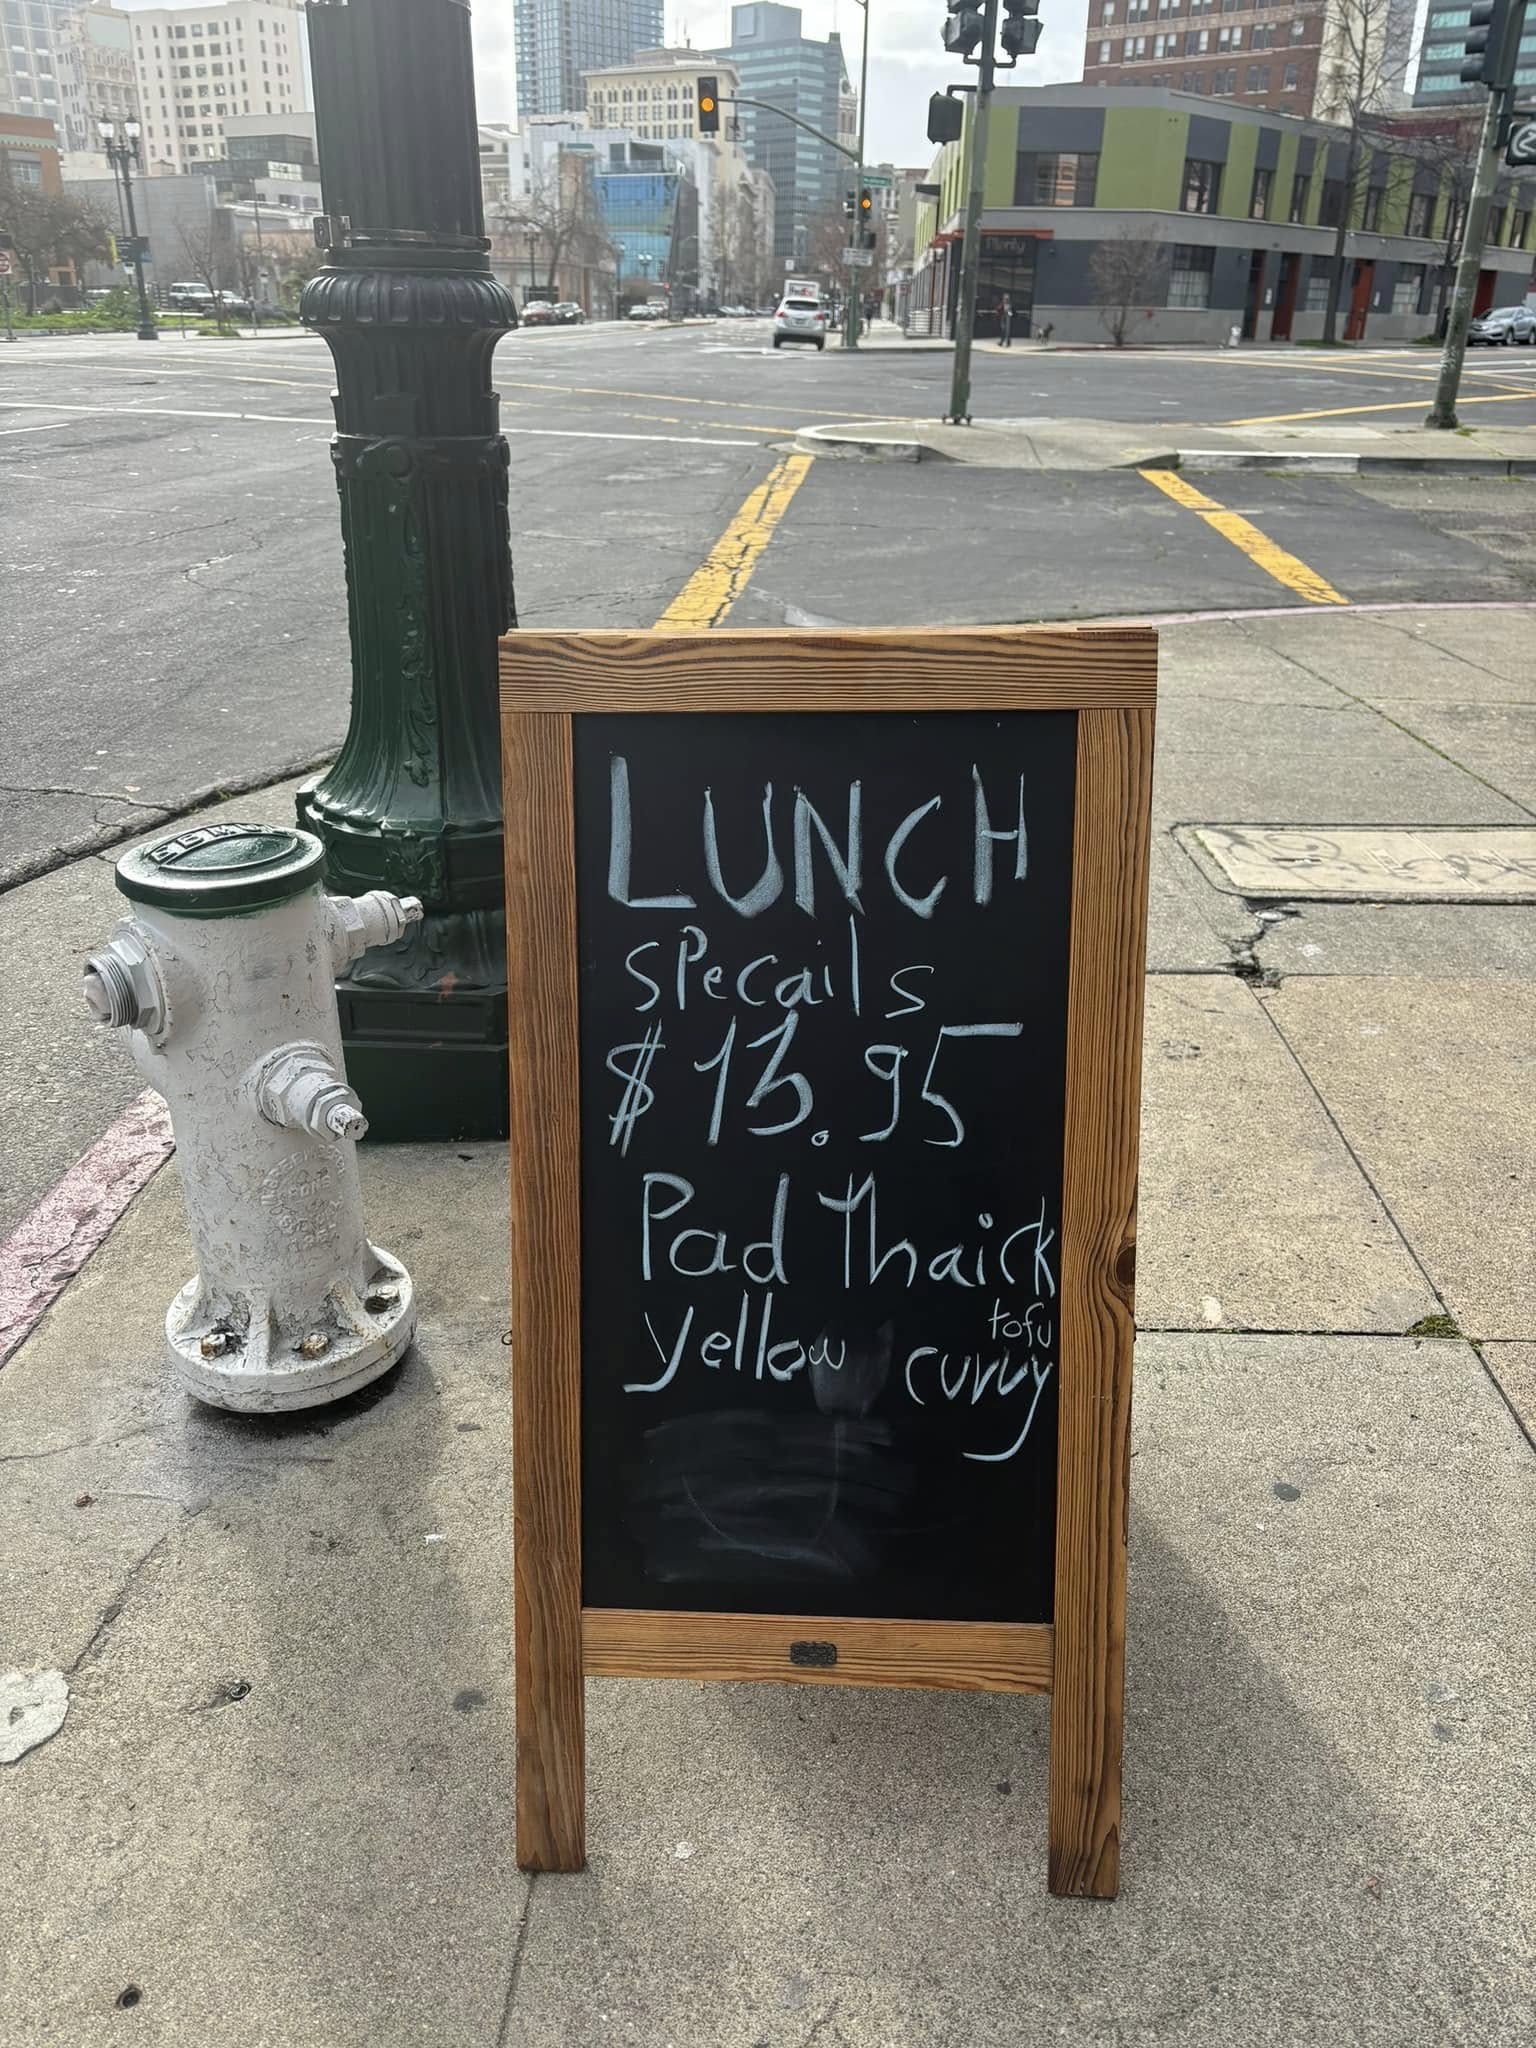 LUNCH
specails
$13.95
Pad Thaick
tofu
yellow curry